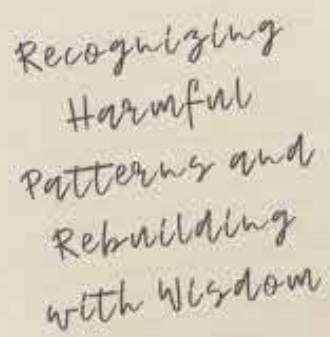 Recognizing
Harmful
Patterns and
Rebuilding
with Wisdom